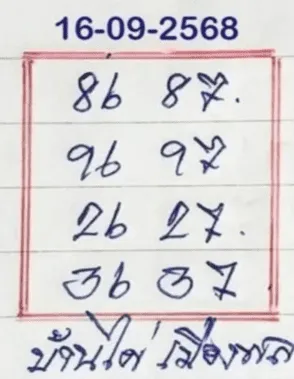 16-09-2568
86 87.
96 97
26 27.
36 37
บ้านไผ่ เมืองพล